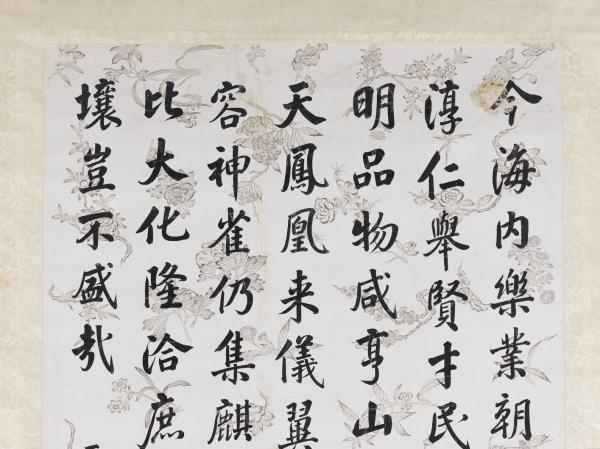 今海内樂業朝
淳仁舉賢才民
明品物咸亨山
天鳳凰来儀翼
容神雀仍集麒
比大化隆洽庶
壤豈不盛哉